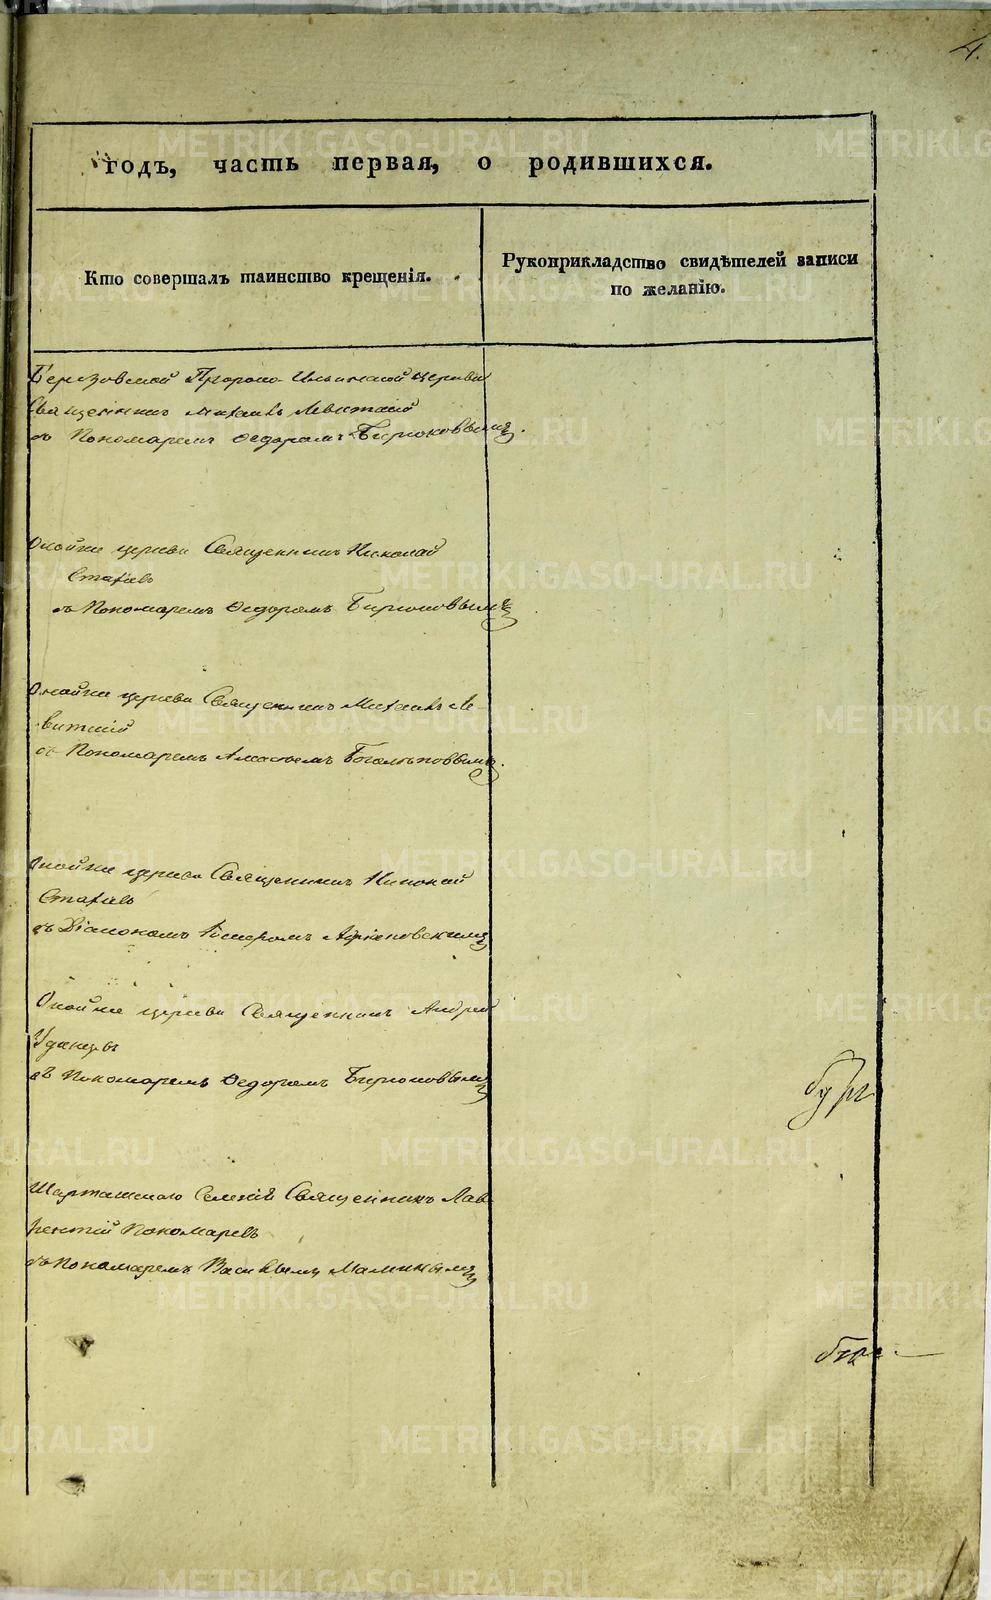 4.
годъ, часть первая, о родившихся.
Кто совершалъ таинство крещенія.
Рукоприкладство свидѣтелей записи
по желанію.
Березовской Пророко Ильинской церкви
Священникъ Михаилъ Левитскій
съ Пономаремъ Федоромъ Бирюковымъ.
Оной же церкви Священникъ Николай
Стахіевъ
съ Пономаремъ Федоромъ Бирюковымъ
Оной же церкви Священникъ Михаилъ Ле-
витскій
съ Пономаремъ Боголѣповымъ.
Оной же церкви Священникъ Николай
Стахіевъ
съ Діакономъ
Оной же церкви Священникъ Андрей
Удинцевъ
съ Пономаремъ Федоромъ Бирюковымъ
Шарташскаго Селенія Священникъ Лав-
рентій Пономаревъ
съ Пономаремъ Василіемъ Маминымъ
METRIKI.GASO-URAL.RU